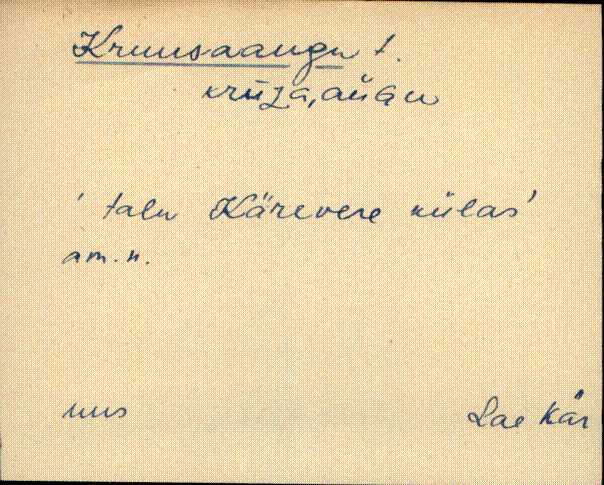 Kruusaaugu t.
krūza,aùGu
' talu Kärevere külas'
am.n.
uus
Lae Kär